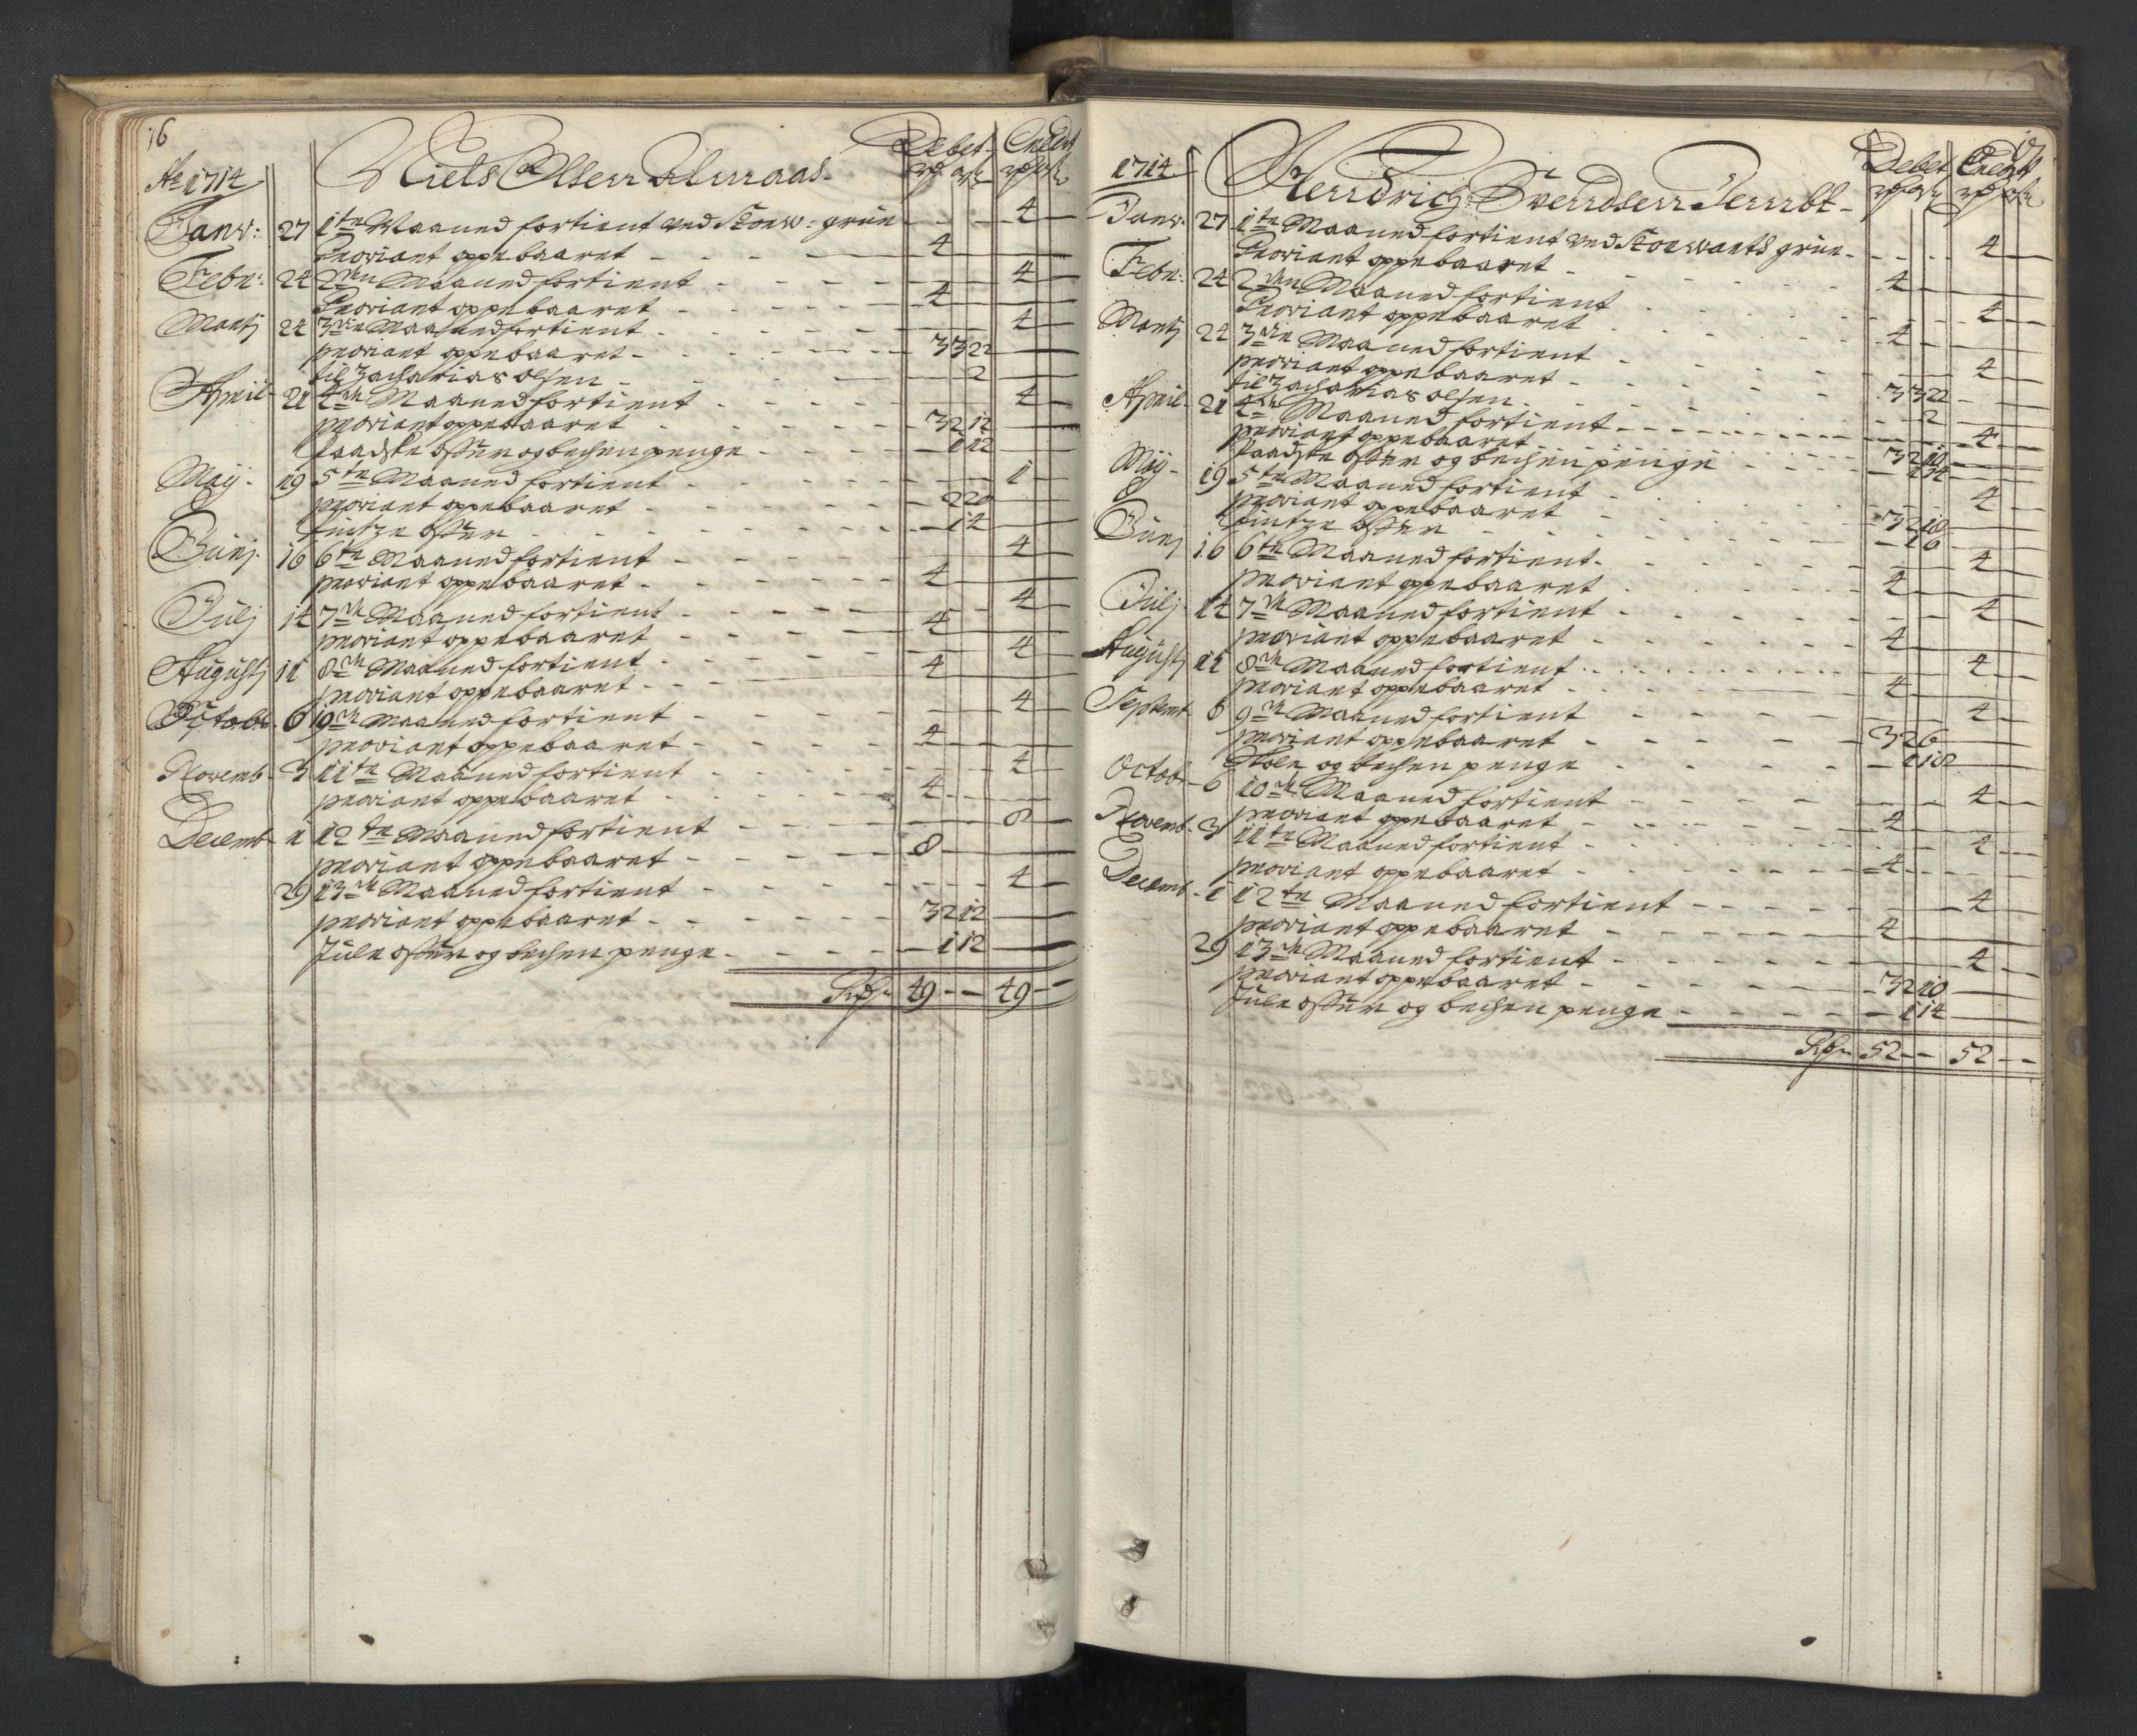 16
Ao 1714 Niels Olsen Almaas. Debet Credit
Janv: 27 1te Maaned fortient ved Storw: grüe - - - 4 -
Proviant oppebaaret - - - 4
Febr: 24 2den Maaned fortient - - - 4 -
Proviant oppebaaret - - - 4
Martj 24 3die Maaned fortient - - - 4 -
proviant oppebaaret - - - 3 3 22
til Zacharias olsen - - - 2
April 21 4de Maaned fortient - - - 4 -
proviant oppebaaret - - - 3 2 12
Paadske offer og bechen penge - - - 1 12
Maij 19 5te Maaned fortient - - - 1 -
proviant oppebaaret - - - 2 20
Pintze offer - - - 1 4
Junj 16 6te Maaned fortient - - - 4 -
proviant oppebaaret - - - 4
Julj 14 7de Maaned fortient - - - 4 -
proviant oppebaaret - - - 4
Augustj 11 8de Maaned fortient - - - 4 -
proviant oppebaaret - - - 4
Octobr 6 Maaned fortient - - - 4 -
proviant oppebaaret - - - 4
Novemb 3 11te Maaned fortient - - - 4 -
proviant oppebaaret - - - 4
Decemb 1 12te Maaned fortient - - - 8
proviant oppebaaret - - - 8
29 13de Maaned fortient - - - 4 -
proviant oppebaaret - - - 3 2 12
Jule offer og bechen penge - - - 1 12
49 - - 49 - -
17
1714 Hendrich Svendsen Debet Credit
Janv: 27 1te Maaned fortient ved Storwarts grüe - - - 4 -
Proviant oppebaaret - - - 4
Febr: 24 2den Maaned fortient - - - 4 -
Proviant oppebaaret - - - 4
Martj 24 3die Maaned fortient - - - 4 -
proviant oppebaaret - - - 3 3 22
til Zacharias olsen - - - 2
April 21 4de Maaned fortient - - - 4 -
proviant oppebaaret - - - 3 2 10
Paadske offer og bechen penge - - - 1 14
Maij 19 5te Maaned fortient - - - 4
proviant oppebaaret - - - 3 2 18
Pintze offer - - - 1 6
Junj 16 6te Maaned fortient - - - 4 -
proviant oppebaaret - - - 4
Julj 14 7de Maaned fortient - - - 4 -
proviant oppebaaret - - - 4
Augustj 11 8de Maaned fortient - - - 4 -
proviant oppebaaret - - - 4
Septemb 8 9de Maaned fortient - - - 4 -
proviant oppebaaret - - - 3 2 6
og bechen penge - - - 1 18
Octob 6 10de Maaned fortient - - - 4 -
proviant oppebaaret - - - 4
Novemb 3 11te Maaned fortient - - - 4 -
proviant oppebaaret - - - 4
Decemb 1 12te Maaned fortient - - - 4 -
proviant oppebaaret - - - 4
29 13de Maaned fortient - - - 4 -
proviant oppebaaret - - - 3 2 10
Jule offer og bechen penge - - - 1 14
52 - - 52 - -